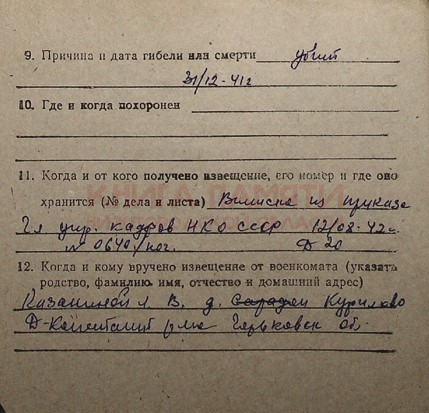 9. Причина и дата гибели или смерти убит
31/12-41г
10. Где и когда похоронен
11. Когда и от кого получено извещение, его номер и где оно
хранится (№ дела и листа) Выписка из приказа
Гл упр. кадров НКО СССР 12/08-42г.
№ 0640/пог. Д 20
12. Когда и кому вручено извещение от военкомата (указать
родство, фамилию, имя, отчество и домашний адрес)
В. д. Курилово
Д-Константинов Горьковск об.
КНИГА ПАМЯТИ